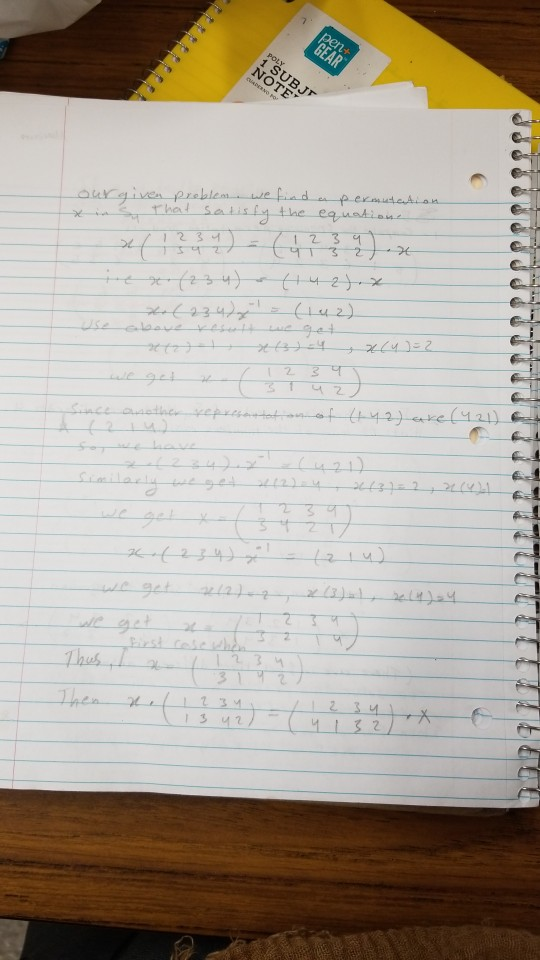 pen+
GEAR
POLY
1 SUBJE
NOTE
our given problem. we find a permutation
x in S4 that satisfy the equation.
x ( 1 2 3 4 ) = ( 1 2 3 4 ) . x
1 3 4 2 4 1 3 2
i.e x. (2 3 4) = (1 4 2). x
x. (2 3 4) x^-1 = (1 4 2)
Use above result we get
x(2)=1 , x(3)=4 , x(4)=2
we get x = ( 1 2 3 4 )
3 1 4 2
Since another representation of (1 4 2) are (4 2 1)
& (2 1 4)
So, we have
x.(2 3 4).x^-1 = (4 2 1)
Similarly we get x(2)=4 , x(3)=2 , x(4)=1
we get x = ( 1 2 3 4 )
3 4 2 1
x.(2 3 4) x^-1 = (2 1 4)
we get x(2)=2 , x(3)=1, x(4)=4
we get x = ( 1 2 3 4 )
3 2 1 4
First case when
Thus, x = ( 1 2 3 4 )
3 1 4 2
Then x . ( 1 2 3 4 ) = ( 1 2 3 4 ) . x
1 3 4 2 4 1 3 2